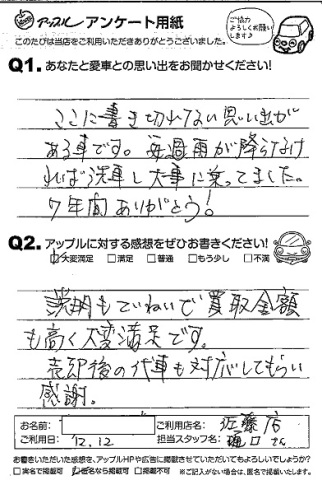 アップル アンケート用紙
このたびは当店をご利用いただきありがとうございました。
ご協力
よろしくお願い
します♪
Q1. あなたと愛車との思い出をお聞かせください!
ここに書き切れない思い出が
ある車です。毎週雨が降らなけ
れば洗車し大事に乗ってました。
7年間ありがとう!
Q2. アップルに対する感想をぜひお書きください!
大変満足 □満足 □普通 □もう少し □不満
説明もていねいで買取金額
も高く大変満足です。
売却後の代車も対応してもらい
感謝。
お名前: ご利用店名: 佐藤店
ご利用日: 12.12 担当スタッフ名: 樋口さん
お書きいただいた感想を、アップルHPや広告に掲載させていただいてもよろしいでしょうか?
□実名で掲載可 匿名なら掲載可 □掲載不可 ※ご記入がない場合は、匿名で掲載いたします。